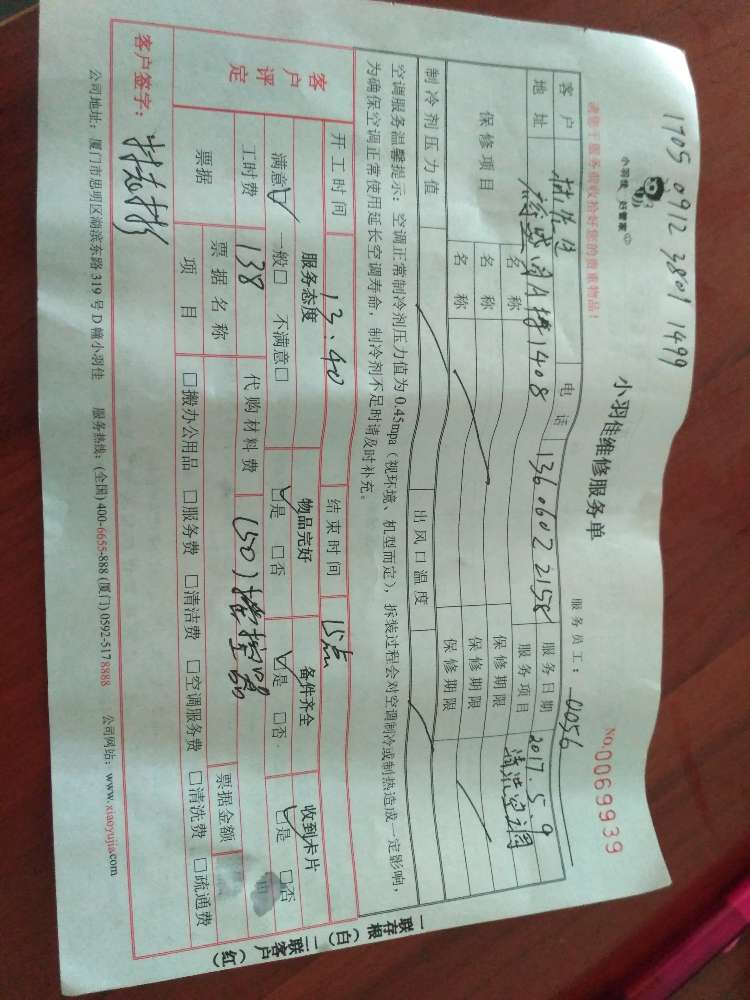 1705 0912 3801 1499
小羽佳 好管家
小羽佳维修服务单
NO.0069939
请您于服务前收拾好您的贵重物品!
服务员工: 0056
客户 电话 13606022158 服务日期 2017.5.9
地址 A 1408 服务项目 清洗空调
保修项目 名称 保修期限
名称 保修期限
名称 保修期限
制冷剂压力值 出风口温度
空调服务温馨提示:空调正常制冷剂压力值为0.45mpa(视环境、机型而定),拆装过程会对空调制冷或制热造成一定影响,
为确保空调正常使用延长空调寿命,制冷剂不足时请及时补充。
开工时间 13:40 结束时间 15点
客户评定 服务态度 物品完好 备件齐全 收到卡片
满意☑ 一般□ 不满意□ ☑是 □否 ☑是 □否 ☑是 □否
工时费 138 代购材料费 150)摇控器
票据 票据名称 票据金额
项目 □搬办公用品 □服务费 □清洁费 □空调服务费 □清洗费 □疏通费
客户签字:
公司地址:厦门市思明区湖滨东路319号D幢小羽佳 服务热线:(全国)400-6655-888 (厦门)0592-5178888 公司网站:www.xiaoyujia.com
一联存根(白) 二联客户(红)